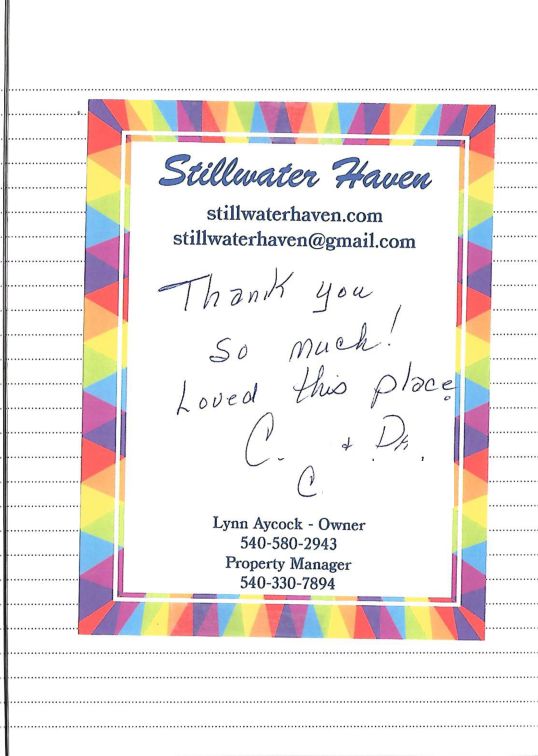 Stillwater Haven
stillwaterhaven.com
stillwaterhaven@gmail.com
Thank you
so much!
Loved this place
C. & Dh.
C.
Lynn Aycock - Owner
540-580-2943
Property Manager
540-330-7894